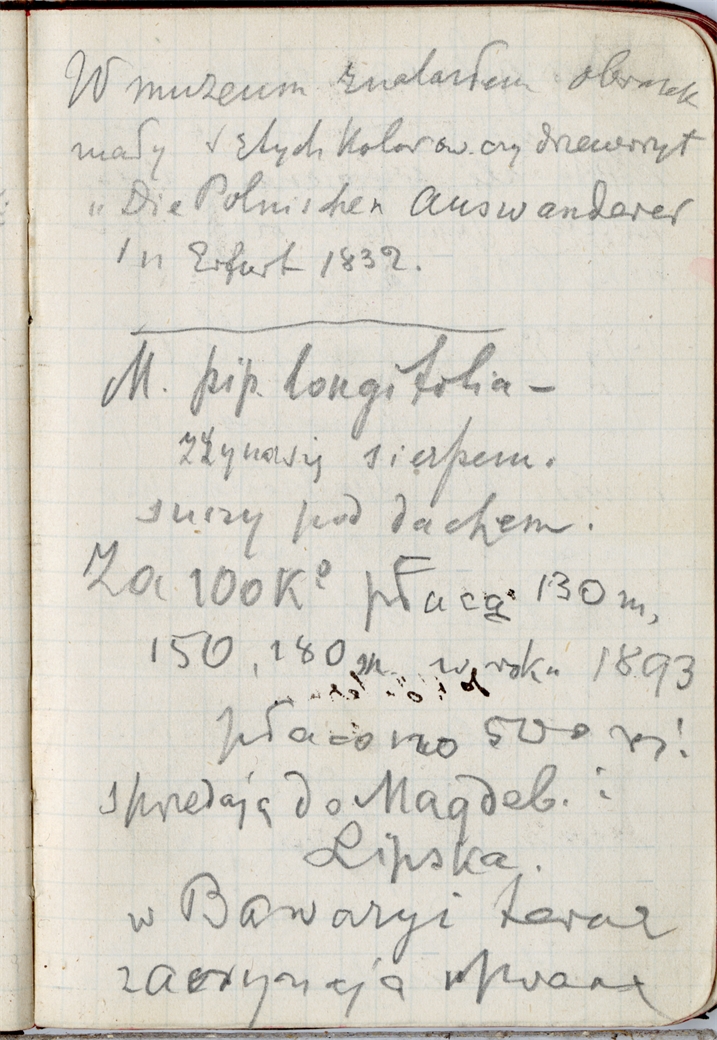 W muzeum znalazłem obrazek
mały złych kolorów czy drzeworyt
„Die Polnischen Auswanderer
in Erfurt 1832.
M. pip. longifolia –
zżynają sierpem.
suszy pod dachem.
Za 100 Ko płacą 130 m,
150, 180 m w roku 1893
płacono 500 m!
sprzedają do Magdeb. i
Lipska.
w Bawaryi teraz
zaczynają uprawę